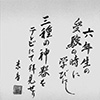 六年生の
受験の時に
学びし
三種の神器を
テレビにて拝見せり